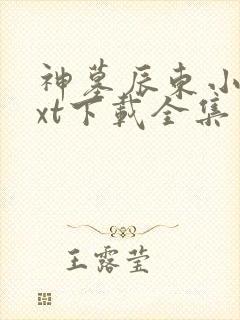 神墓辰东小
xt下载全集
王露莹